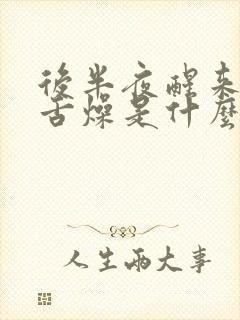 後半夜醒来
舌燥是什麼
人生兩大事